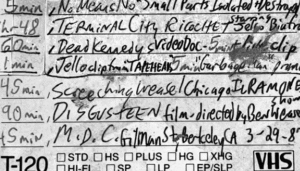 5 min, No Means No "Small Parts Isolated + Destroy
1hr-48 "TERMINAL City RICOCHET" starring Jello Biafra
60 min, Dead Kennedys Video Doc - clip
1 min, Jello clip from TAPEHEADS 5 min Garbage Can Drum
45 min Screeching Weasel Chicago IL RAMONES show
90 min, DISGUSTEEN film-directed by Ben Weasel
45 min, M.D.C. Gilman St Berkeley CA 3-29-8
T-120 ☐ STD ☐ HS ☐ PLUS ☐ HG ☐ XHG VHS
☐ HI-FI ☐ SP ☐ LP ☐ EP/SLP